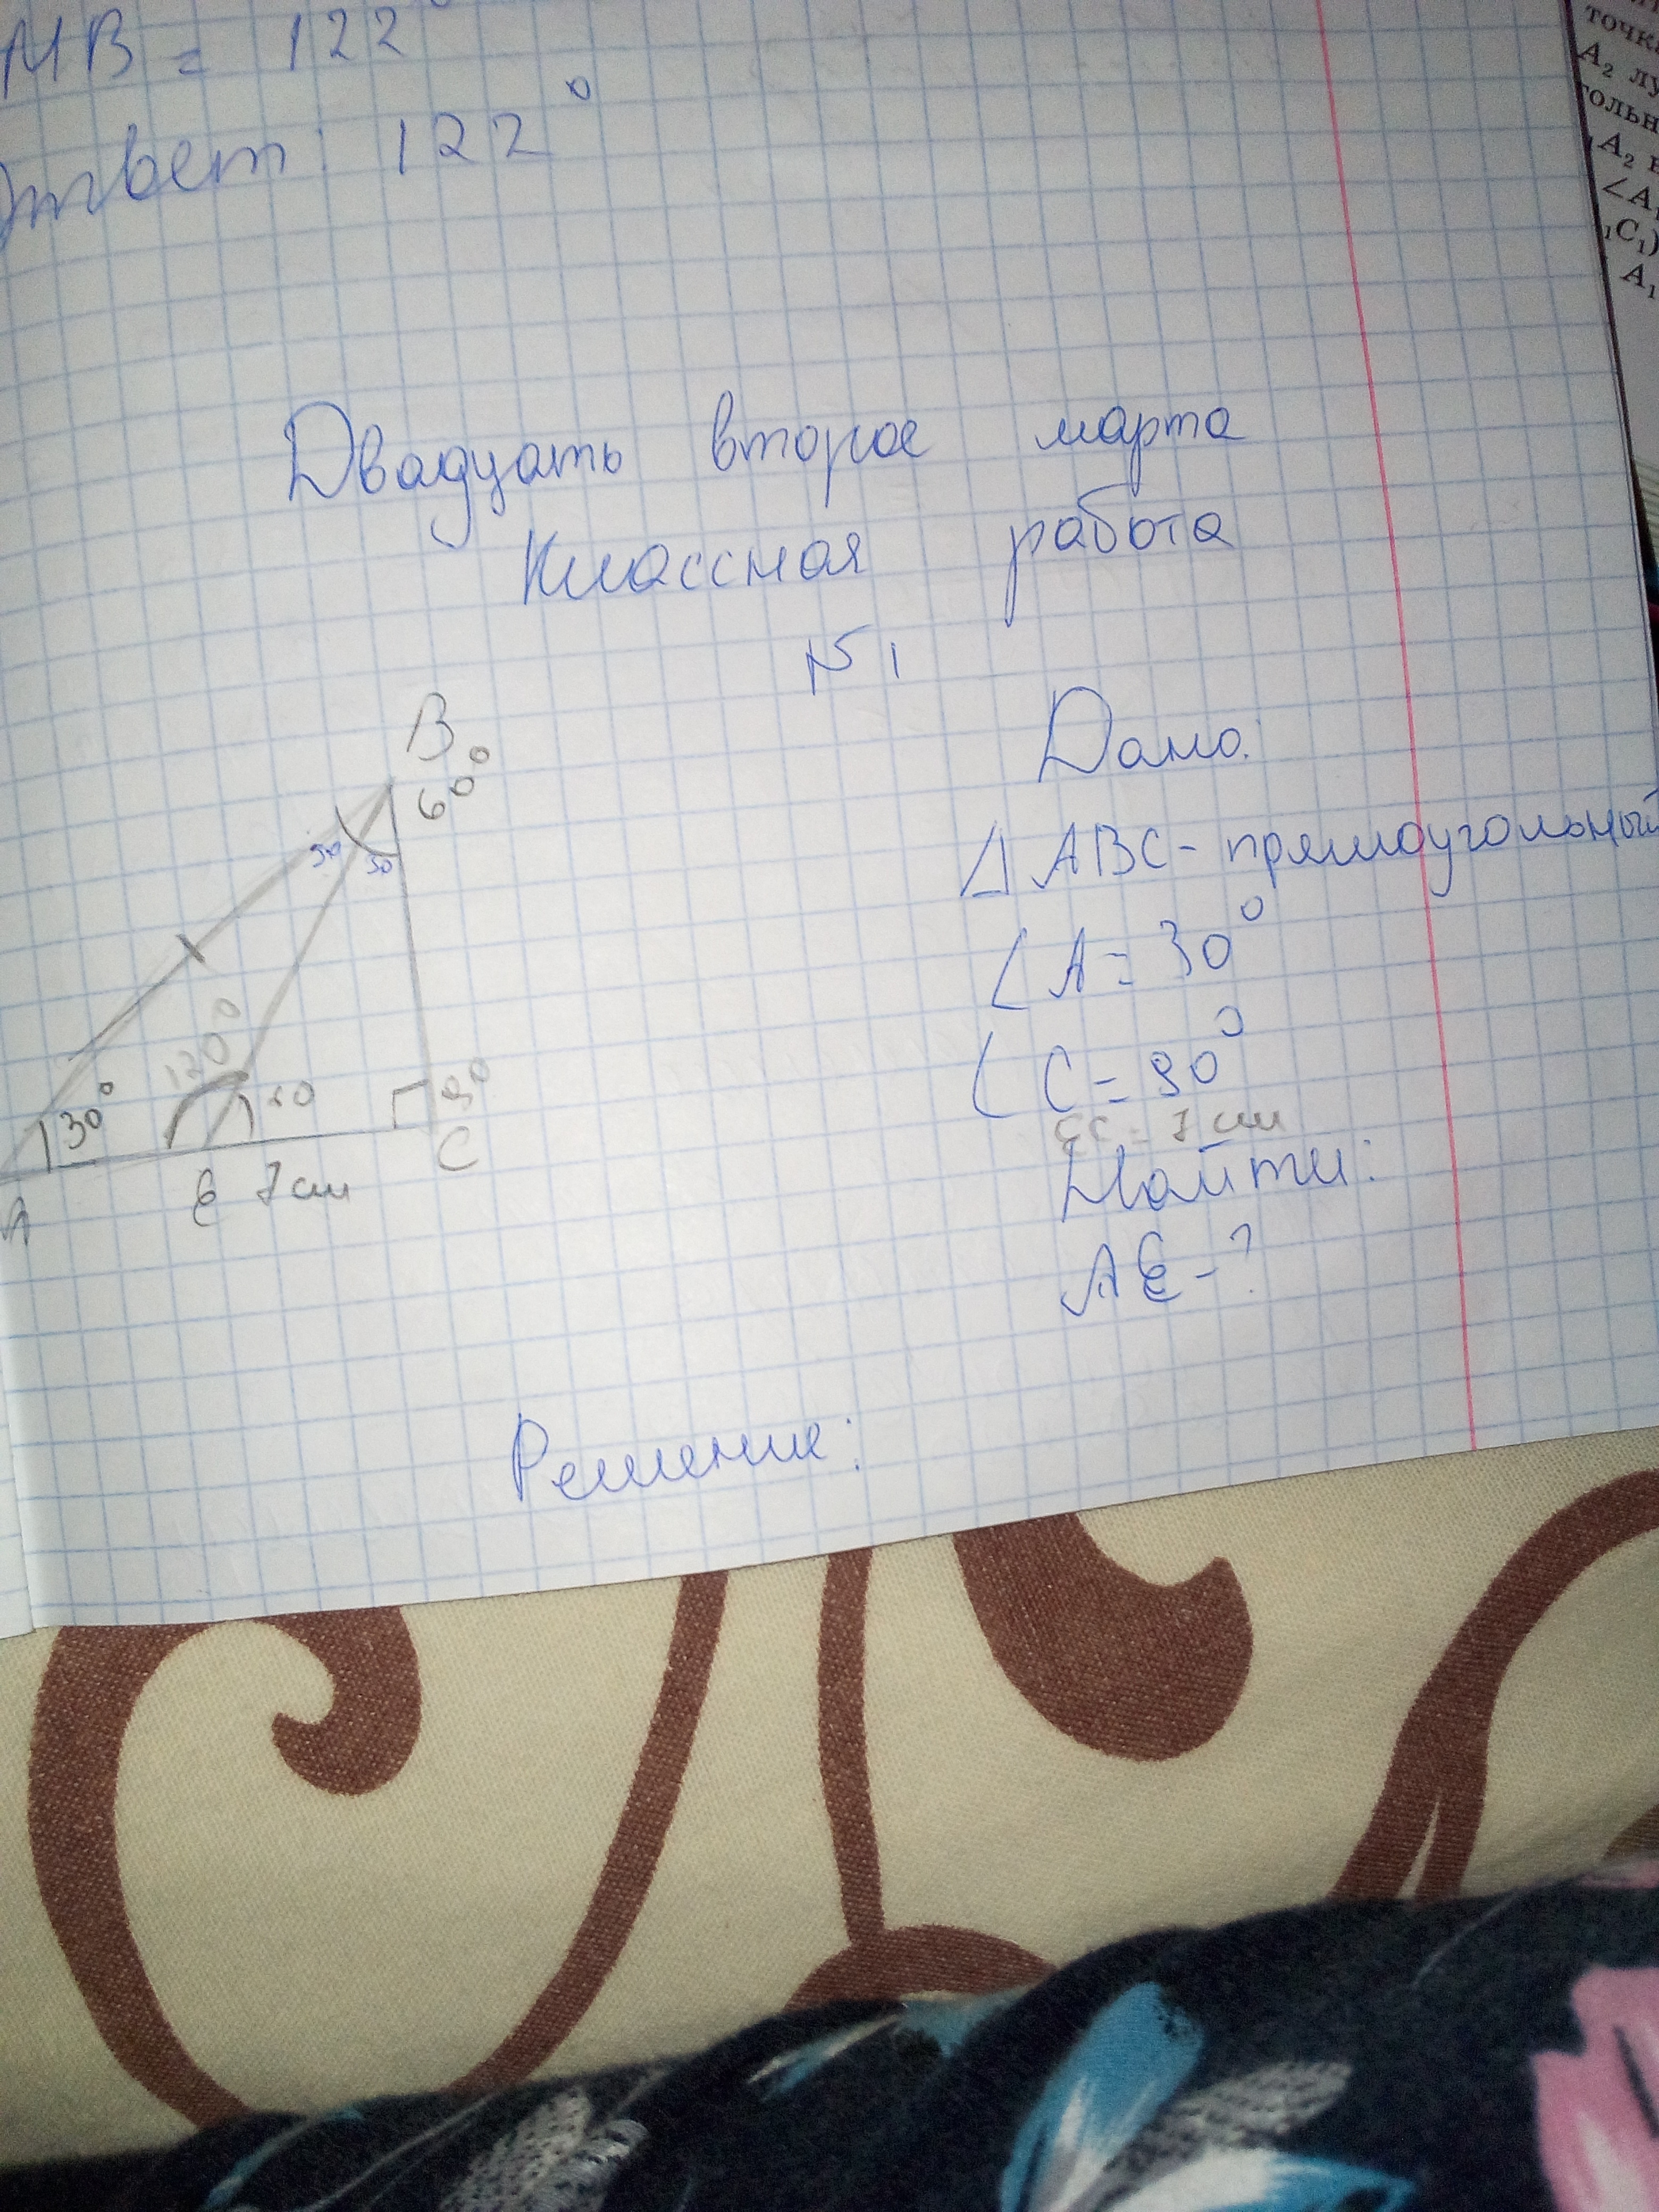 MB = 122°
Ответ: 122°
точк
A₂ лу
гольн
A₂
∠A₁
₁C₁)
A₁
Двадцать второе марта
Классная работа
№1
B
60°
30 30
120°
30°
60
90
A
E 7 см
C
Дано:
△ ABC - прямоугольный
∠ A = 30°
∠ C = 90°
EC = 7 см
Найти:
AE - ?
Решение: